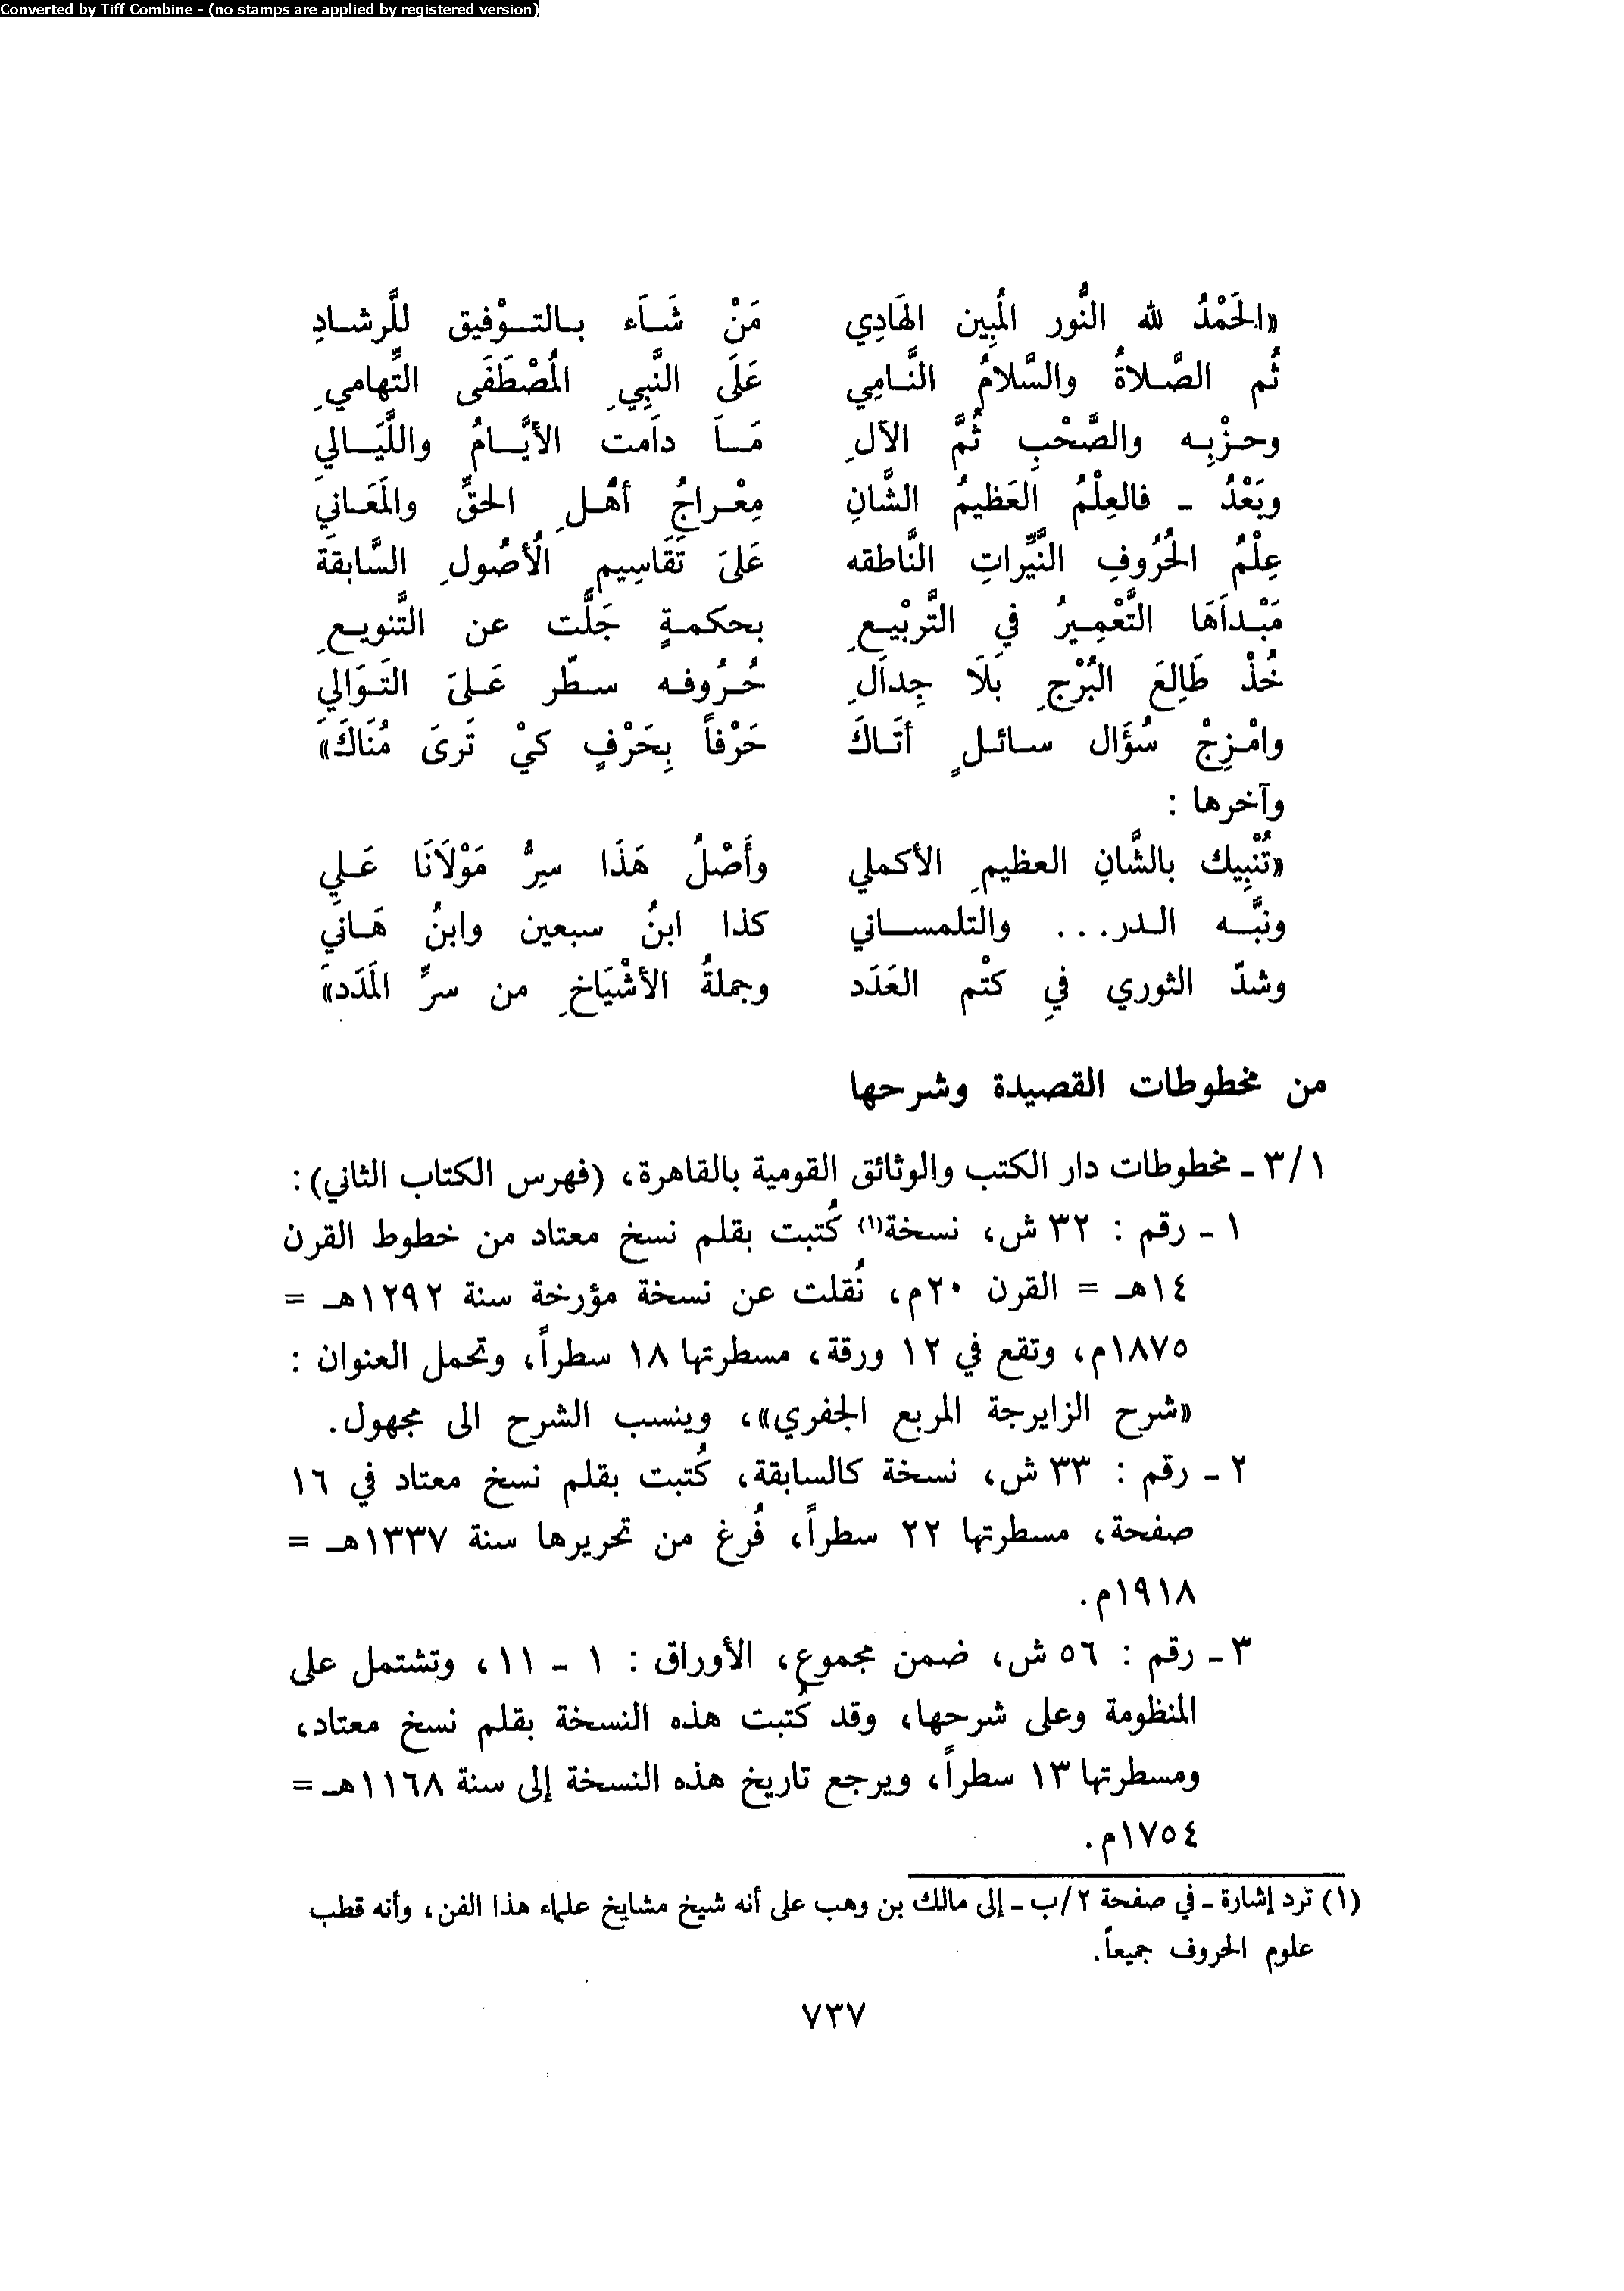 Converted by Tiff Combine - (no stamps are applied by registered version)
«الحَمْدُ لله النُّور المُبِين الهَادِي مَنْ شَاَء بالتوْفيق للَّرشادِ
ثُم الصَّلاةُ والسَّلامُ النَّامِي عَلَى النَّبِيِ المُصْطَفَى التِّهامي
وحزْبِه والصَّحْبِ ثُمَّ الآلِ مَا داَمت الأيَّامُ واللَّيَالي
وبَعْدُ - فالعِلْمُ العَظيمُ الشَّانِ مِعْراجُ أهْلِ الحقِّ والمَعَاني
عِلْمُ الحُرُوفِ النَّيِّراتِ النَّاطقه عَلىَ تَقَاسِيمِ الُأصُولِ السَّابقة
مَبْدأهَا التَّعْمِيرُ في التَّربْيعِ بحكمةٍ جَلَّت عن التَّنويعِ
خُذْ طَالِعَ البُرْجِ بَلَا جِداَلِ حُرُوفه سطّر عَلىَ التَوَالي
وامْزِجْ سُؤَال سائلٍ أتَاكَ حَرْفاً بِحَرْفٍ كيْ تَرىَ مُنَاكَ»
وآخرها :
«تُنْبِيك بالشَّانِ العظيمِ الأكملي وأَصْلُ هَذَا سِرُّ مَوْلَانَا عَلي
ونبَّه الدر... والتلمساني كذا ابنُ سبعين وابنُ هَاني
وشدّ الثوري فيِ كتْم العَدَد وجملةُ الأشْيَاخِ من سرِّ المَدَد»
من مخطوطات القصيدة وشرحها
٣/١ - مخطوطات دار الكتب والوثائق القومية بالقاهرة، (فهرس الكتاب الثاني):
١ - رقم : ٣٢ ش، نسخة(١) كُتبت بقلم نسخ معتاد من خطوط القرن
١٤هـ = القرن ٢٠م، نُقلت عن نسخة مؤرخة سنة ١٢٩٢هـ =
١٨٧٥م، وتقع في ١٢ ورقة، مسطرتها ١٨ سطراً، وتحمل العنوان :
«شرح الزايرجة المربع الجفري»، وينسب الشرح الى مجهول.
٢ - رقم : ٣٣ ش، نسخة كالسابقة، كُتبت بقلم نسخ معتاد في ١٦
صفحة، مسطرتها ٢٢ سطراً، فُرغ من تحريرها سنة ١٣٣٧هـ =
١٩١٨م.
٣ - رقم : ٥٦ ش، ضمن مجموع، الأوراق : ١ - ١١، وتشتمل على
المنظومة وعلى شرحها، وقد كُتبت هذه النسخة بقلم نسخ معتاد،
ومسطرتها ١٣ سطراً، ويرجع تاريخ هذه النسخة إلى سنة ١١٦٨هـ =
١٧٥٤م.
(١) ترد إشارة - في صفحة ٢/ب - إلى مالك بن وهب على أنه شيخ مشايخ علماء هذا الفن، وأنه قطب
علوم الحروف جميعاً.
٧٣٧